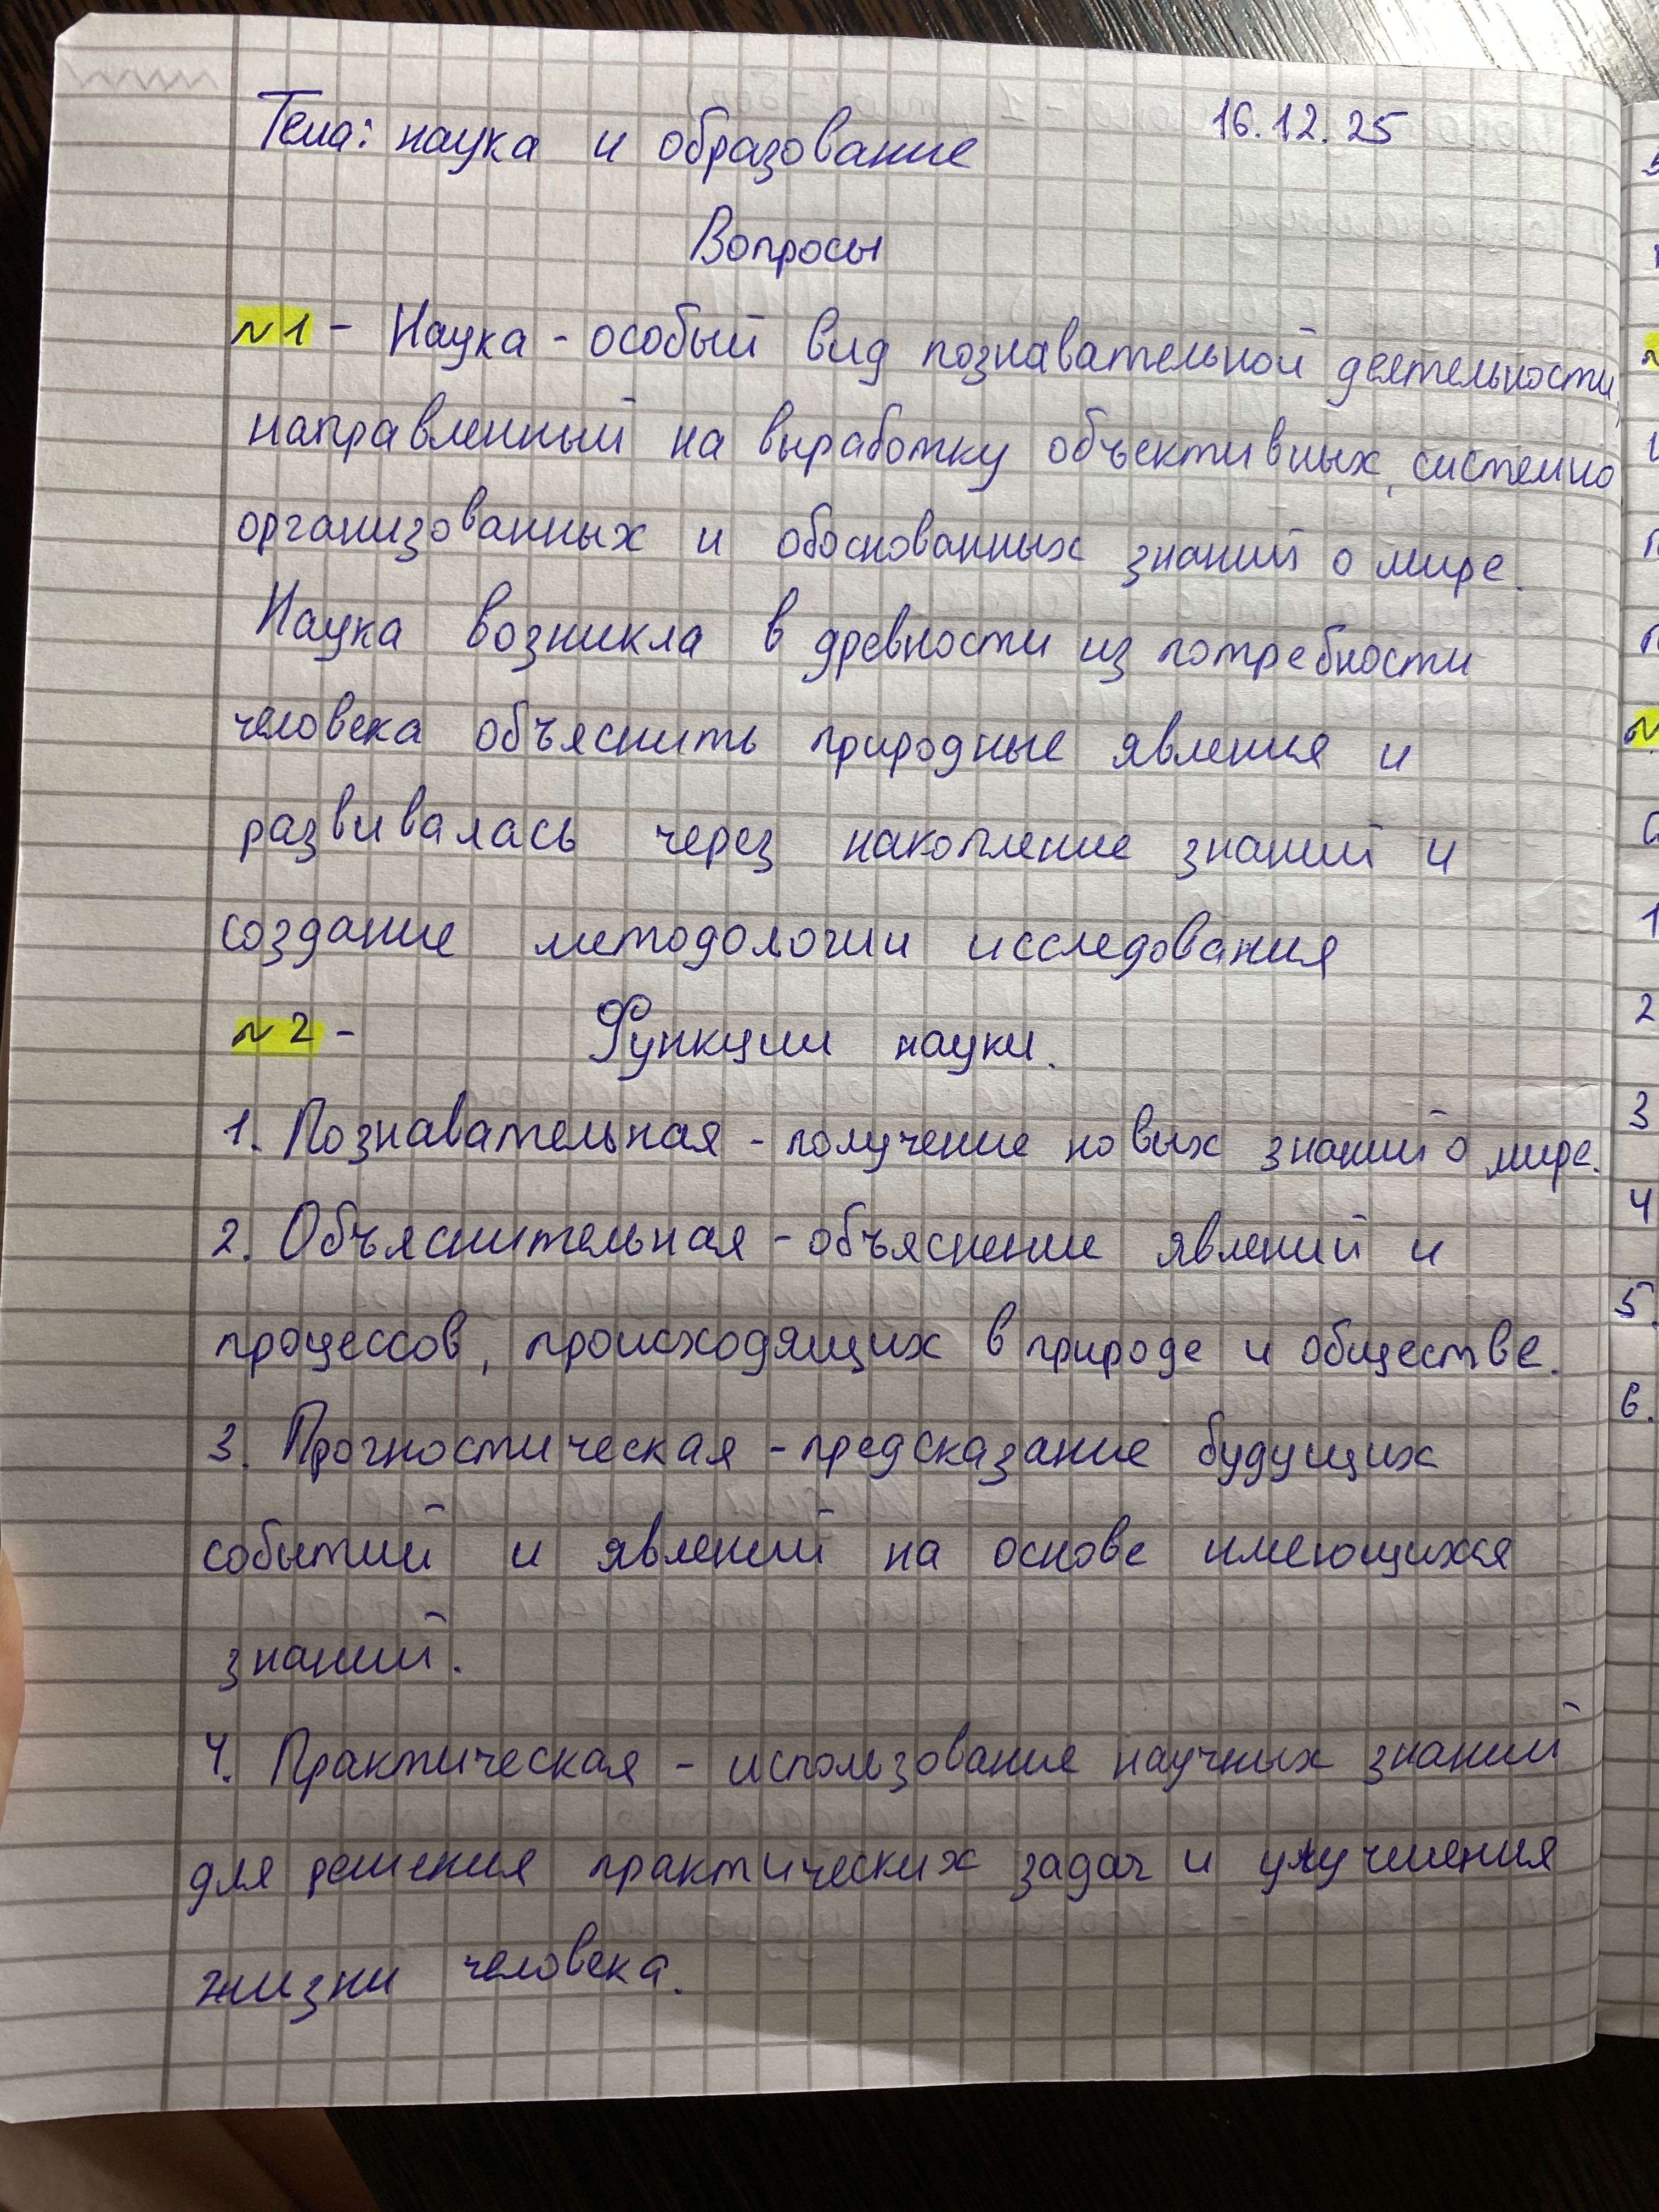 Тема: наука и образование 16.12.25
Вопросы
№1 - Наука - особый вид познавательной деятельности,
направленный на выработку объективных, системно
организованных и обоснованных знаний о мире.
Наука возникла в древности из потребности
человека объяснить природные явления и
развивалась через накопление знаний и
создание методологии исследования
№2 - Функции науки.
1. Познавательная - получение новых знаний о мире.
2. Объяснительная - объяснение явлений и
процессов, происходящих в природе и обществе.
3. Прогностическая - предсказание будущих
событий и явлений на основе имеющихся
знаний.
4. Практическая - использование научных знаний
для решения практических задач и улучшения
жизни человека.
1
2
3
4
5.
6.